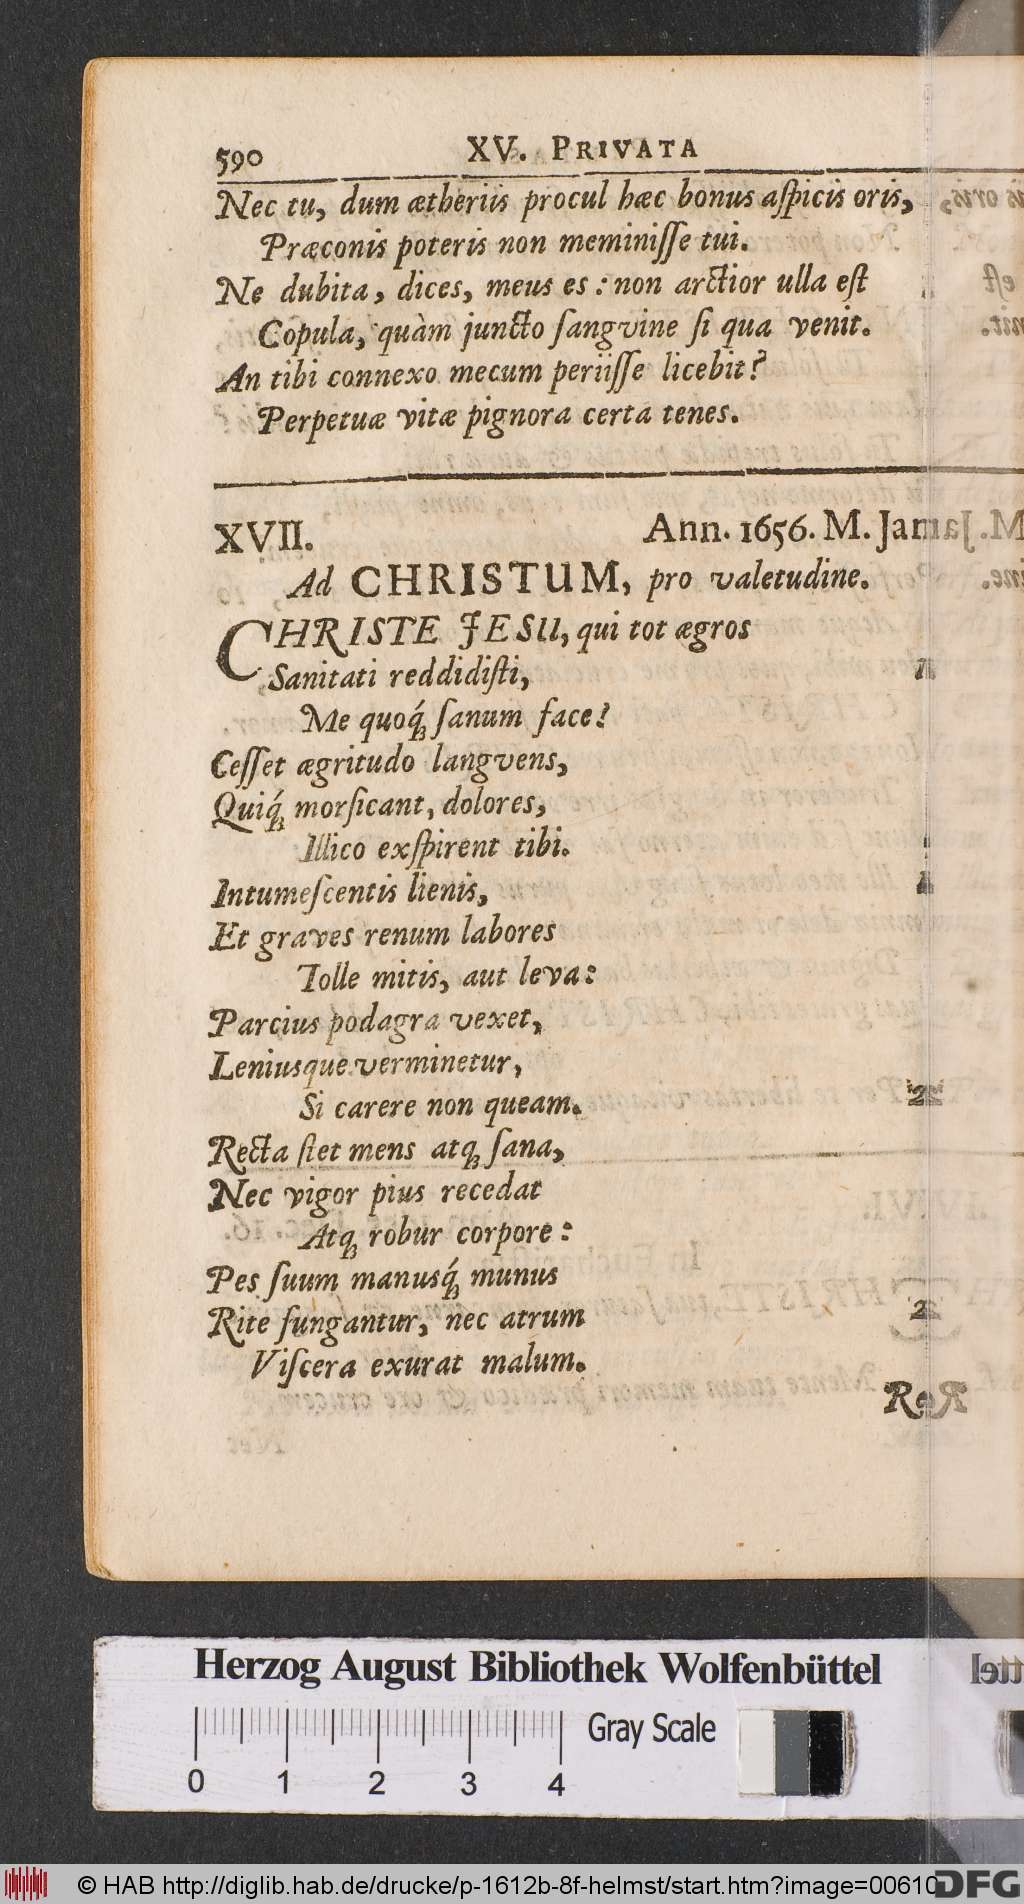 590 XV. PRIVATA
Nec tu, dum ætheriis procul hæc bonus aſpicis oris,
Præconis poteris non meminiſſe tui.
Ne dubita, dices, meus es: non arctior ulla eſt
Copula, quàm juncto ſangvine ſi qua venit.
An tibi connexo mecum periiſſe licebit?
Perpetuæ vitæ pignora certa tenes.
XVII. Ann. 1656. M. Jan.
Ad CHRISTUM, pro valetudine.
CHRISTE JESU, qui tot ægros
Sanitati reddidiſti,
Me quoq́; ſanum face!
Ceſſet ægritudo langvens,
Quiq́; morſicant, dolores,
Illico exſpirent tibi.
Intumeſcentis lienis,
Et graves renum labores
Tolle mitis, aut leva:
Parcius podagra vexet,
Leniusque verminetur,
Si carere non queam.
Recta ſiet mens atq; ſana,
Nec vigor pius recedat
Atq; robur corpore:
Pes ſuum manusq́; munus
Rite fungantur, nec atrum
Viſcera exurat malum.
Herzog August Bibliothek Wolfenbüttel
Gray Scale
0 1 2 3 4
© HAB http://diglib.hab.de/drucke/p-1612b-8f-helmst/start.htm?image=00610
DFG